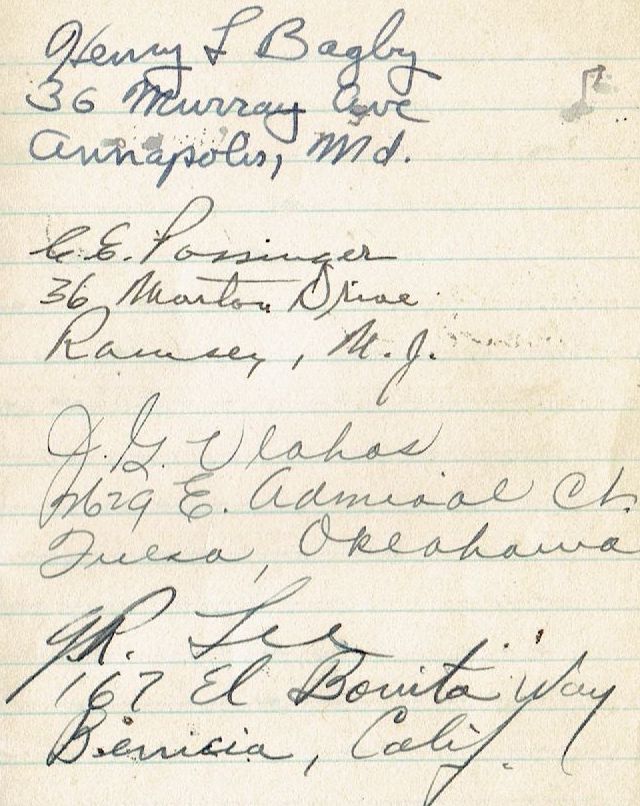 Henry L Bagby
36 Murray Ave
Annapolis, Md.
C.E. Possinger
36 Morton Drive
Ramsey, N.J.
J. G. Vlahos
E. Admiral Ct.
Tulsa, Oklahoma
Lee
167 El Bonita Way
Benicia, Calif.